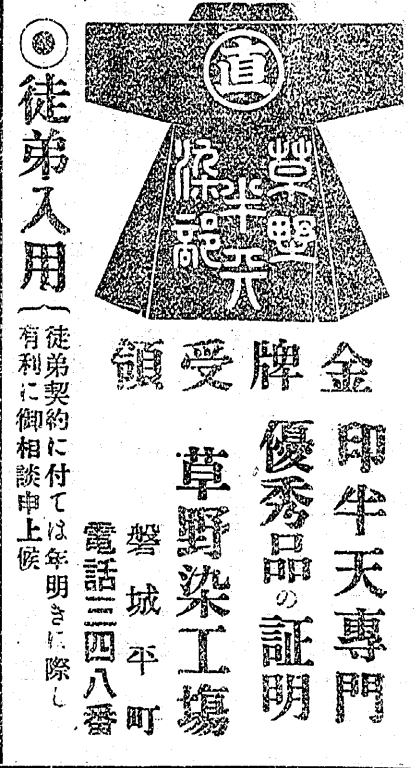 直
草野
半天
染部
金牌受領
印半天專門
優秀品の証明
草野染工塲
磐城平町
電話三四八番
◉徒弟入用
徒弟契約に付ては年明きに際し
有利に御相談申上候